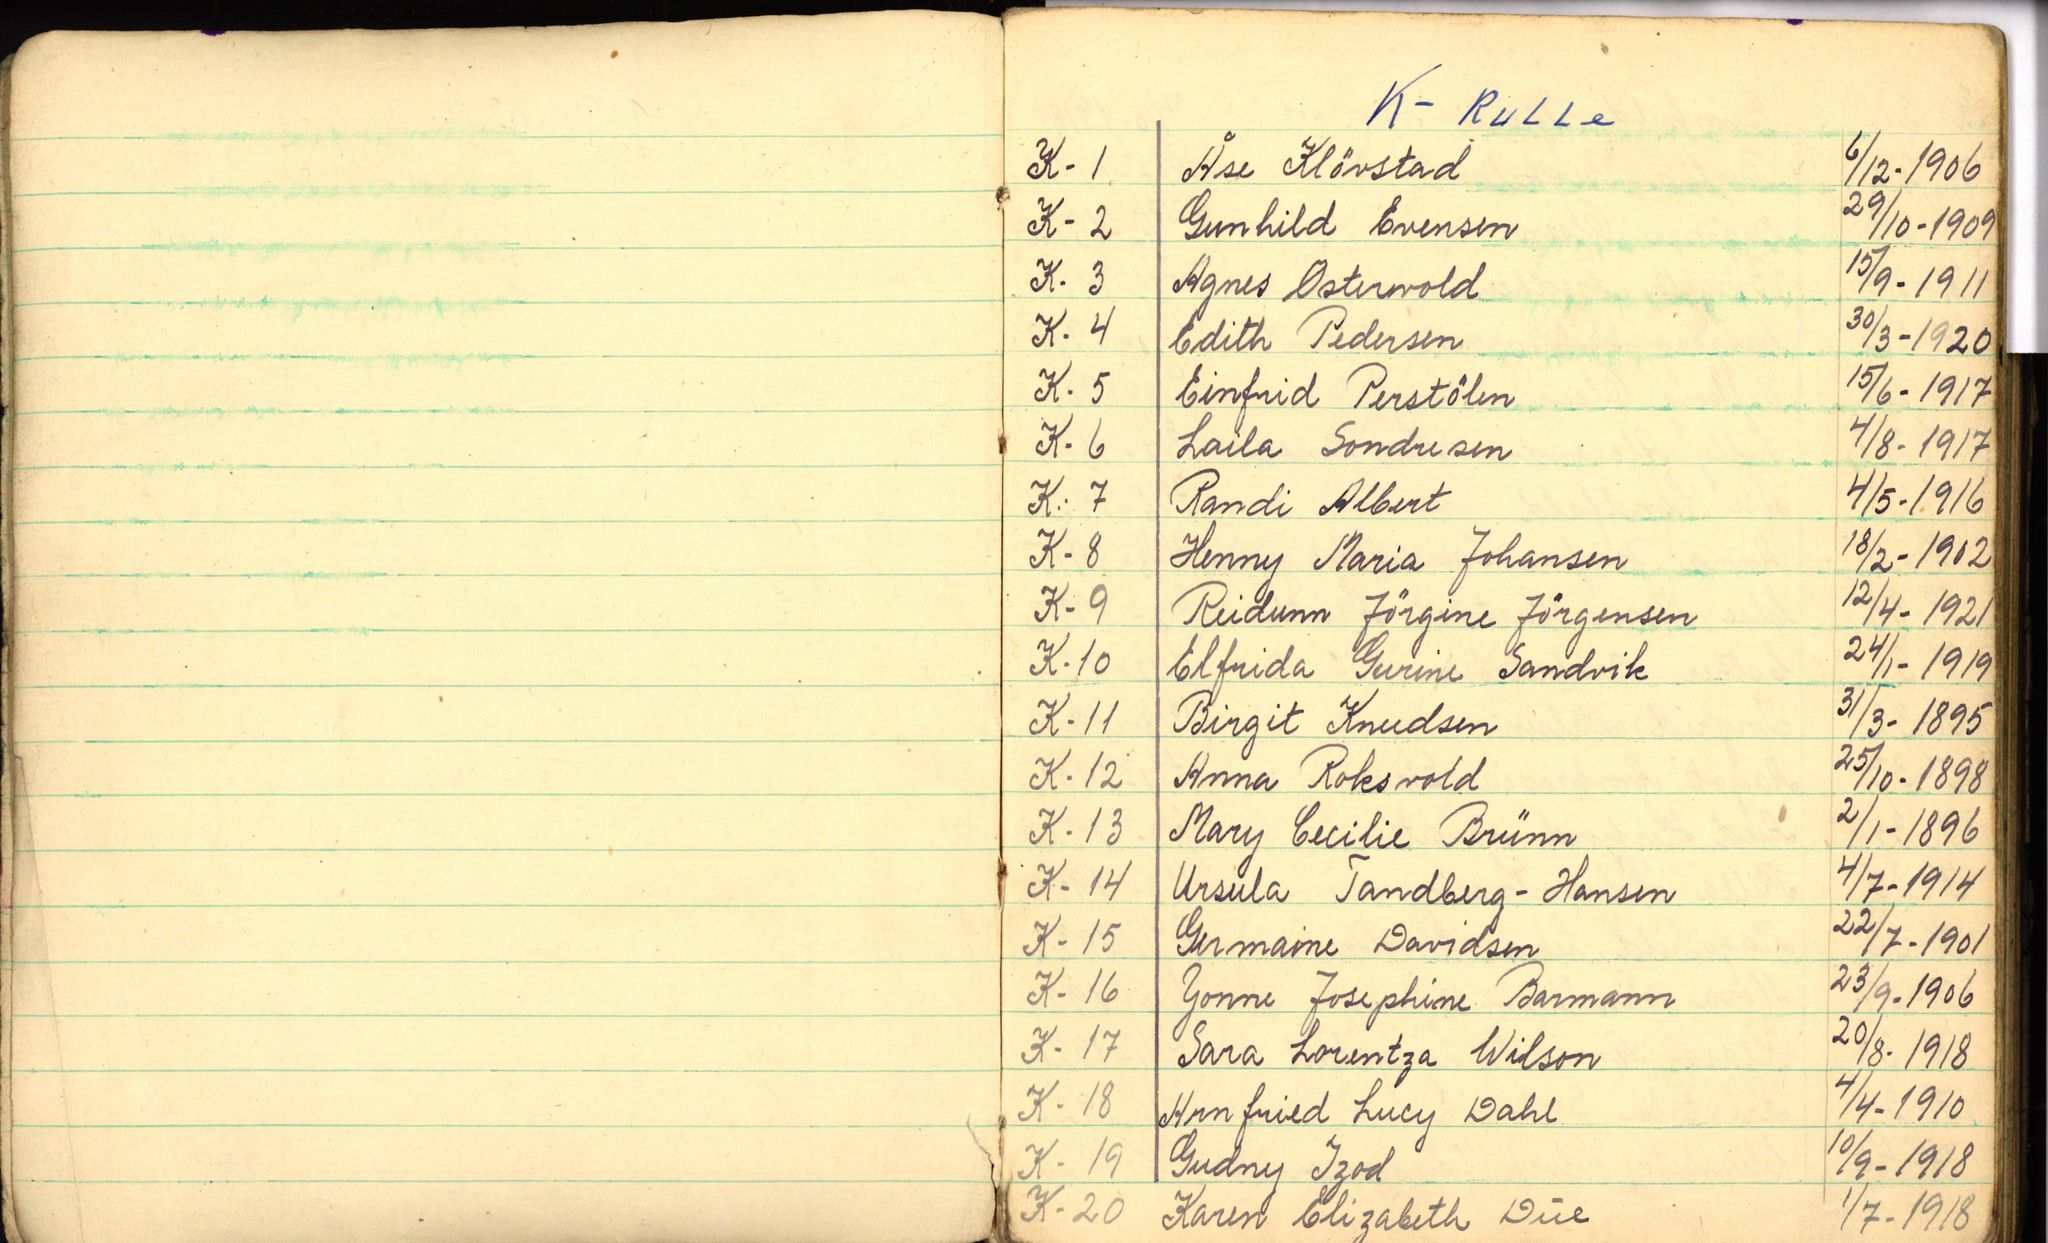 K- Rulle
K- 1 Åse Klövstad 6/12-1906
K- 2 Gunhild Evensen 29/10-1909
K- 3 Agnes Osterwold 15/9-1911
K- 4 Edith Pedersen 30/3-1920
K- 5 Einfrid Perstölen 15/6-1917
K- 6 Laila Sondresen 4/8-1917
K- 7 Randi Albert 4/5-1916
K- 8 Henny Maria Johansen 18/2-1902
K- 9 Reidunn Jörgine Jörgensen 12/4-1921
K- 10 Elfrida Gurine Sandvik 24/1-1919
K- 11 Birgit Knudsen 31/3-1895
K- 12 Anna Roksvold 25/10-1898
K- 13 Mary Cecilie Brünn 2/1-1896
K- 14 Ursula Tandberg-Hansen 4/7-1914
K- 15 Germaine Davidsen 22/7-1901
K- 16 Yonne Josephine Barmann 23/9-1906
K- 17 Sara Lorentza Wilson 20/8-1918
K- 18 Arnfried Lucy Dahl 4/4-1910
K- 19 Gudny Izod 10/9-1918
K- 20 Karen Elizabeth Düe 1/7-1918